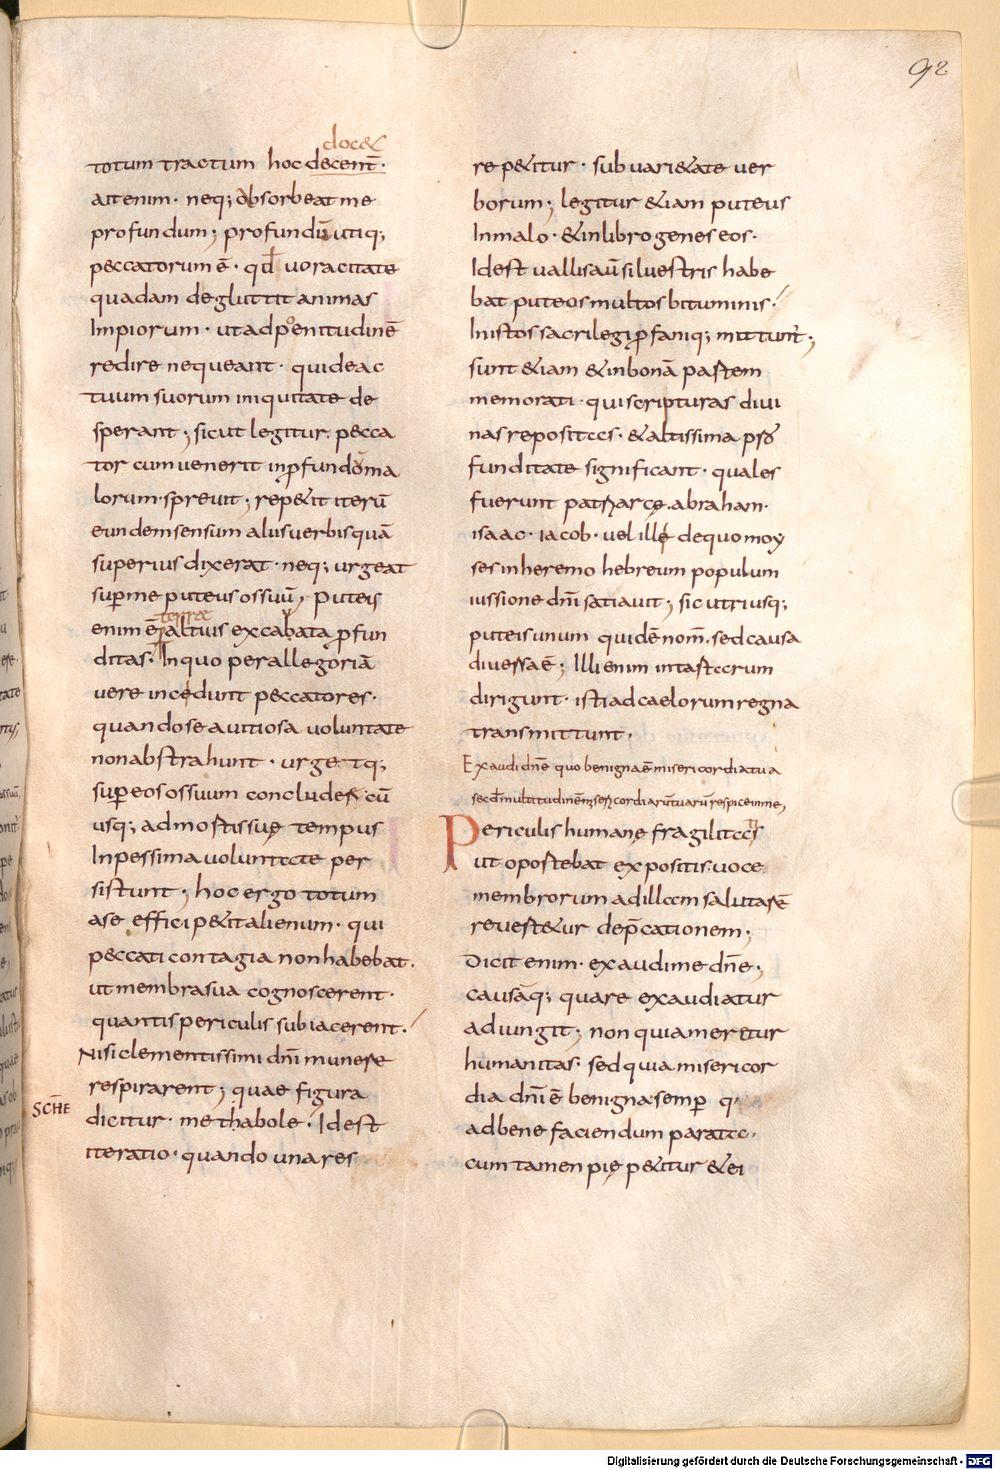 92
doc&
totum tractum hoc decent̄·
ait enim· neq; obsorbeat me
profundum; profundū utiq;
peccatorum ē· qd̄ uoracitate
quadam degluttit animas
Impiorum· ut ad penitudinē
redire nequeant· qui de ac
tuum suorum iniquitate de
sperant; sicut legitur· pecca
tor cum uenerit in ꝓfundum ma
lorum· spreuit; rep&it iterū
eundem sensum aliis uerbis quā
superius dixerat· neq; urgeat
sup̄ me puteus os suū; puteus
terrae
enim ē altius excauata ꝓfun
ditas· In quo per allegoriā
uere incedunt peccatores·
quando se a uitiosa uoluntate
non abstrahunt· urgetq;
sup̄ eos os suum concludens cū
usq; ad mortis suę tempus
In pessima uoluntate per
sistunt; hoc ergo totum
a se effici p&it alienum· qui
peccati contagia non habebat·
ut membra sua cognoscerent·
quantis periculis subiacerent·
Nisi clementissimi dn̄i munere
respirarent; quae figura
SCHE
dicitur· methabole· Id est
iteratio· quando una res
rep&itur· sub uari&ate uer
borum; legitur &iam puteus
In malo· & in libro geneseos·
Id est uallis aū siluestris habe
bat puteos multos bituminis·
In istos sacrilegi ꝓfaniq; mittunt̄;
sunt &iam & in bonā partem
memorati· qui scripturas diui
nas repositas· & altissima
funditate significant· quales
fuerunt patriarcę· abraham·
isaac· iacob· uel ille de quo moy
ses in heremo hebreum populum
iussione dn̄i satiauit; sic utriusq;
puteis unum quidē nom̄· sed causa
diuersa ē; Illi enim in tartarum
dirigunt· isti ad caelorum regna
transmittunt·
Exaudi dn̄e quo benigna ē misericordia tua
secd̄ multitudinē misericordiarū tuarū respice in me;
Periculis humanę fragilitatis
ut oportebat expositis· uoce
membrorum ad illam salutarē
reuert&ur dep̄cationem;
Dicit enim· exaudi me dn̄e;
causāq; quare exaudiatur
adiungit; non quia meretur
humanitas· sed quia misericor
dia dn̄i ē benigna· semp̄ q·
ad bene faciendum parata·
cum tamen pię p&itur & ei
Digitalisierung gefördert durch die Deutsche Forschungsgemeinschaft - DFG